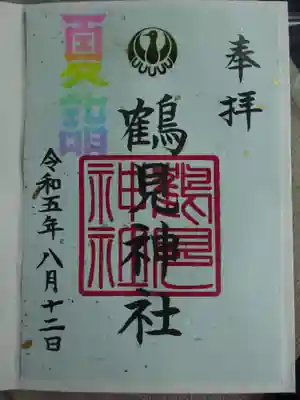 奉拝
鶴見神社
夏詣
令和五年八月十二日
鶴見
神社